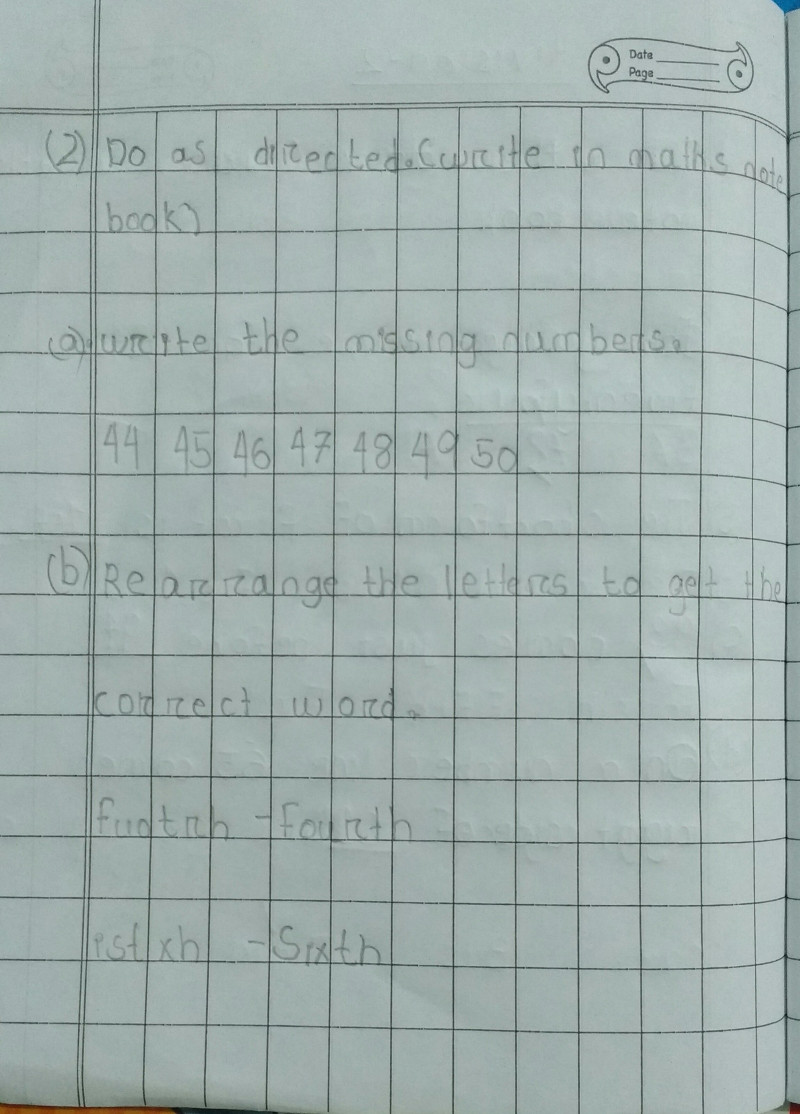 Date
Page
(2) Do as directed. (write in maths note
book)
(a) write the missing numbers.
44 45 46 47 48 49 50
(b) Rearrange the letters to get the
correct word.
fuotrh - Fourth
istxh - Sixth